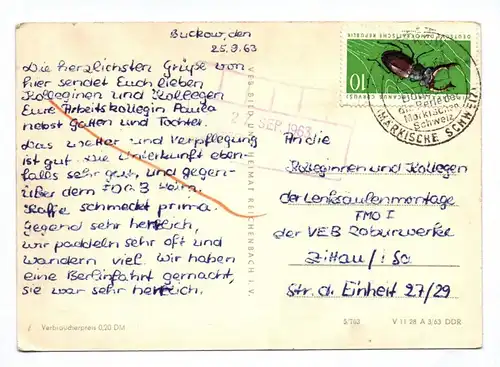 Buckow, den
25.9.63
Die herzlichsten Grüße von
hier sendet Euch lieben
Kolleginen und Kollegen
Eure Arbeitskollegin Paula
nebst Gatten und Tochter.
Das Wetter und Verpflegung
ist gut. Die Unterkunft eben-
falls sehr gut, und gegen-
über dem FDGB Heim.
Kaffe schmeckt prima.
Gegend sehr herrlich,
wir paddeln sehr oft und
wandern viel. Wir haben
eine Berlinfahrt gemacht,
sie war sehr herrlich.
Verbraucherpreis 0,20 DM
VEB BILD UND HEIMAT REICHENBACH I. V.
SEP 1963
DEUTSCHE DEMOKRATISCHE REPUBLIK
10
LUCANUS CERVUS
die Perle der
Märkischen
Schweiz
(MÄRKISCHE SCHWEIZ)
An die
Kolleginnen und Kollegen
der Lenksäulenmontage
TMO I
der VEB Roburwerke
Zittau/Sa
Str. d. Einheit 27/29
V 11 28 A 5/63 DDR